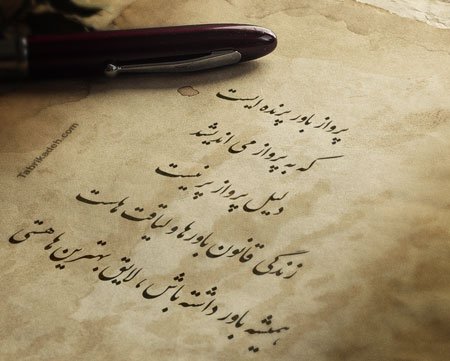 پرواز باور پرنده ایست
که به پرواز می اندیشد
دلیل پرواز پر نیست
زندگی قانون باورها و لیاقت هاست
همیشه باور داشته باش ، لایق بهترین ها هستی
Tabrikadeh.com